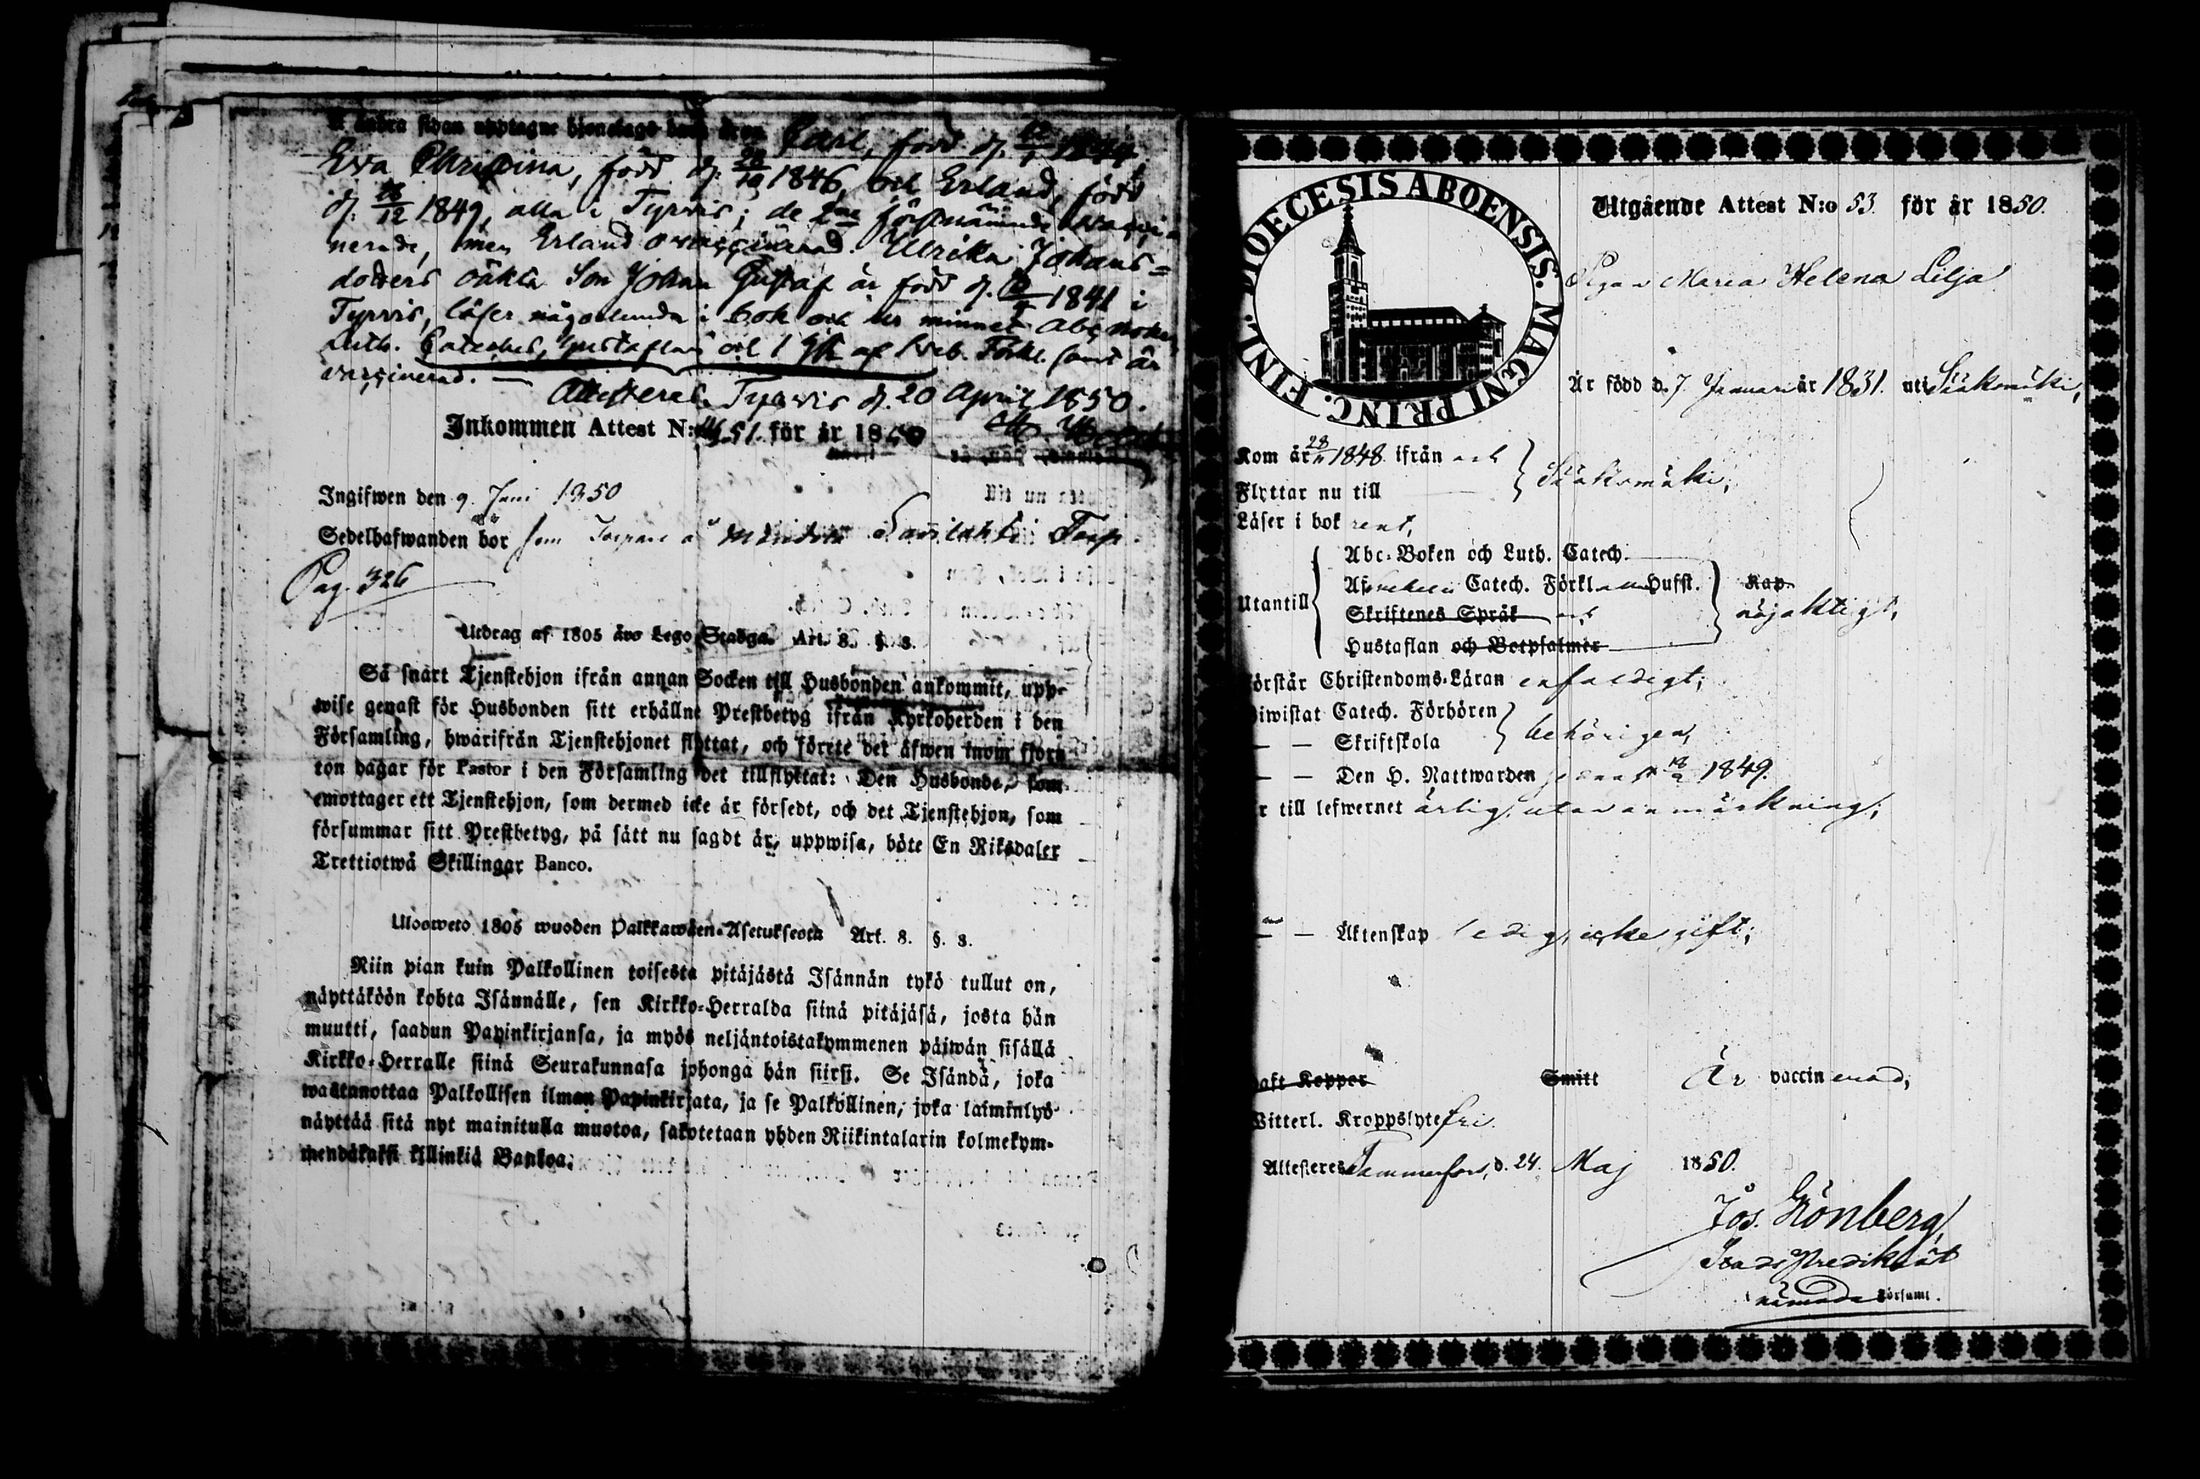 å andra sidan upptagne hjonelags barn äro: Carl, född d. 12/1 1844,
Eva Christina, född d. 1846, och Erland, född
d. 18/12 1849, alla i Tyrvis; de 2ne förstnämnde vacci-
nerade, men Erland ovaccinerad. Ulrika Johans=
dotters oäkta Son Johan Gustaf är född d. 1841 i
Tyrvis, läser någorlunda i bok och ur minnet Abc boken
Luth. Cateches, hustaflan och 1 af Förkl. samt är
vaccinerad. —
Attesteras. Tyrvis d. 20 April 1850.
Inkommen Attest N:o 51. för år 1850
Ingifwen den 9 Juni 1850
Sedelhafwanden bör som Torpare å Savilahti Torp.
Pag. 326
Utdrag af 1805 års Lego-Stadga. Art. 8. §. 3.
Så snart Tjenstehjon ifrån annan Socken till Husbonden ankommit, upp-
wise genast för Husbonden sitt erhållne Prestbetyg ifrån Kyrkoherden i den
Församling, hwarifrån Tjenstehjonet flyttat, och förete det äfwen inom fjor-
ton dagar för Pastor i den Församling det tillflyttat: Den Husbonde, som
emottager ett Tjenstehjon, som dermed icke är försedt, och det Tjenstehjon, som
försummar sitt Prestbetyg, på sätt nu sagdt är, uppwisa, böte En Riksdaler
Trettiotwå Skillingar Banco.
Uloosweto 1805 wuoden Palkkawäen-Asetuksesta Art. 8. §. 3.
Niin pian kuin Palkollinen toisesta pitäjästä Isännän tykö tullut on,
näyttäköön kohta Isännälle, sen Kirkko-Herralda siinä pitäjäsä, josta hän
muutti, saadun Papinkirjansa, ja myös neljäntoistakymmenen päiwän sisällä
Kirkko-Herralle siinä Seurakunnasa johonga hän siirsi. Se Isändä, joka
wastanottaa Palkollisen ilman Papinkirjata, ja se Palkollinen, joka laiminlyö
näyttää sitä nyt mainitulla muotoa, sakotetaan yhden Riikintalarin kolmekym-
mendäkaksi killinkiä Bankoa.
DIOECESIS ABOENSIS. MAGNI PRINC. FINL.
Utgående Attest N:o 53 för år 1850.
Pigan Maria Helena Lilja
Är född d. 7 Januari år 1831. uti Sääksmäki,
Kom år 28/11 1848 ifrån och
Flyttar nu till
Sääksmäki,
Läser i bok rent,
Utantill
Abc-Boken och Luth. Catech.
Catech. Förkl. Hufst.
Skriftenes Språk och
Hustaflan och Botpsalmer
Kap
nöjaktigt,
Förstår Christendoms-Läran enfaldigt;
Biwistat Catech. Förhören
— — Skriftskola
behörigen,
— — Den H. Nattwarden senast 1849.
Är till lefwernet ärlig, utan anmärkning;
— — Äktenskap ledig, icke gift;
Haft Koppor Smitt Är vaccinerad,
Witterl. Kroppslyte fri.
Attesteres Tammerfors, d. 24. Maj 1850.
Jos. Grönberg
Stads Predikant
i nämnda Församl.